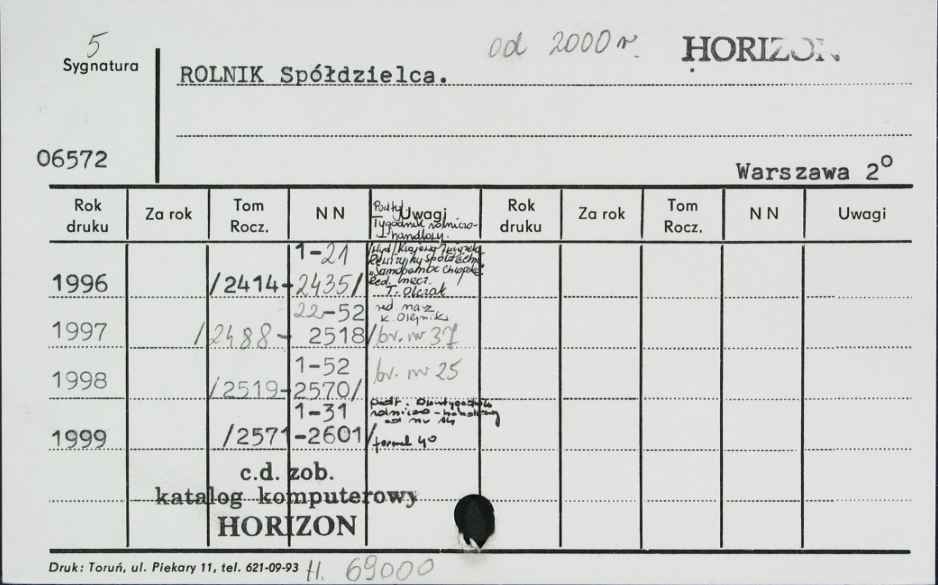 5 od 2000 r. HORIZON
Sygnatura
ROLNIK Spółdzielca.
06572
Warszawa 2°
Rok druku Za rok Tom Rocz. NN Uwagi Rok druku Za rok Tom Rocz. NN Uwagi
Tygodnik rolniczo-
handlowy.
1-21
1996 /2414-2435/
"Samopomoc Chłopska"
T. Olczak
22-52
K. Olejnik
1997 /2488- 2518/ br. nr 37
1-52 br. nr 25
1998 /2519-2570/
1-31 rolniczo-handlowy
od nr 14
1999 /2571-2601/ format 4°
c.d. zob.
katalog komputerowy
HORIZON
Druk: Toruń, ul. Piekary 11, tel. 621-09-93 H. 69000